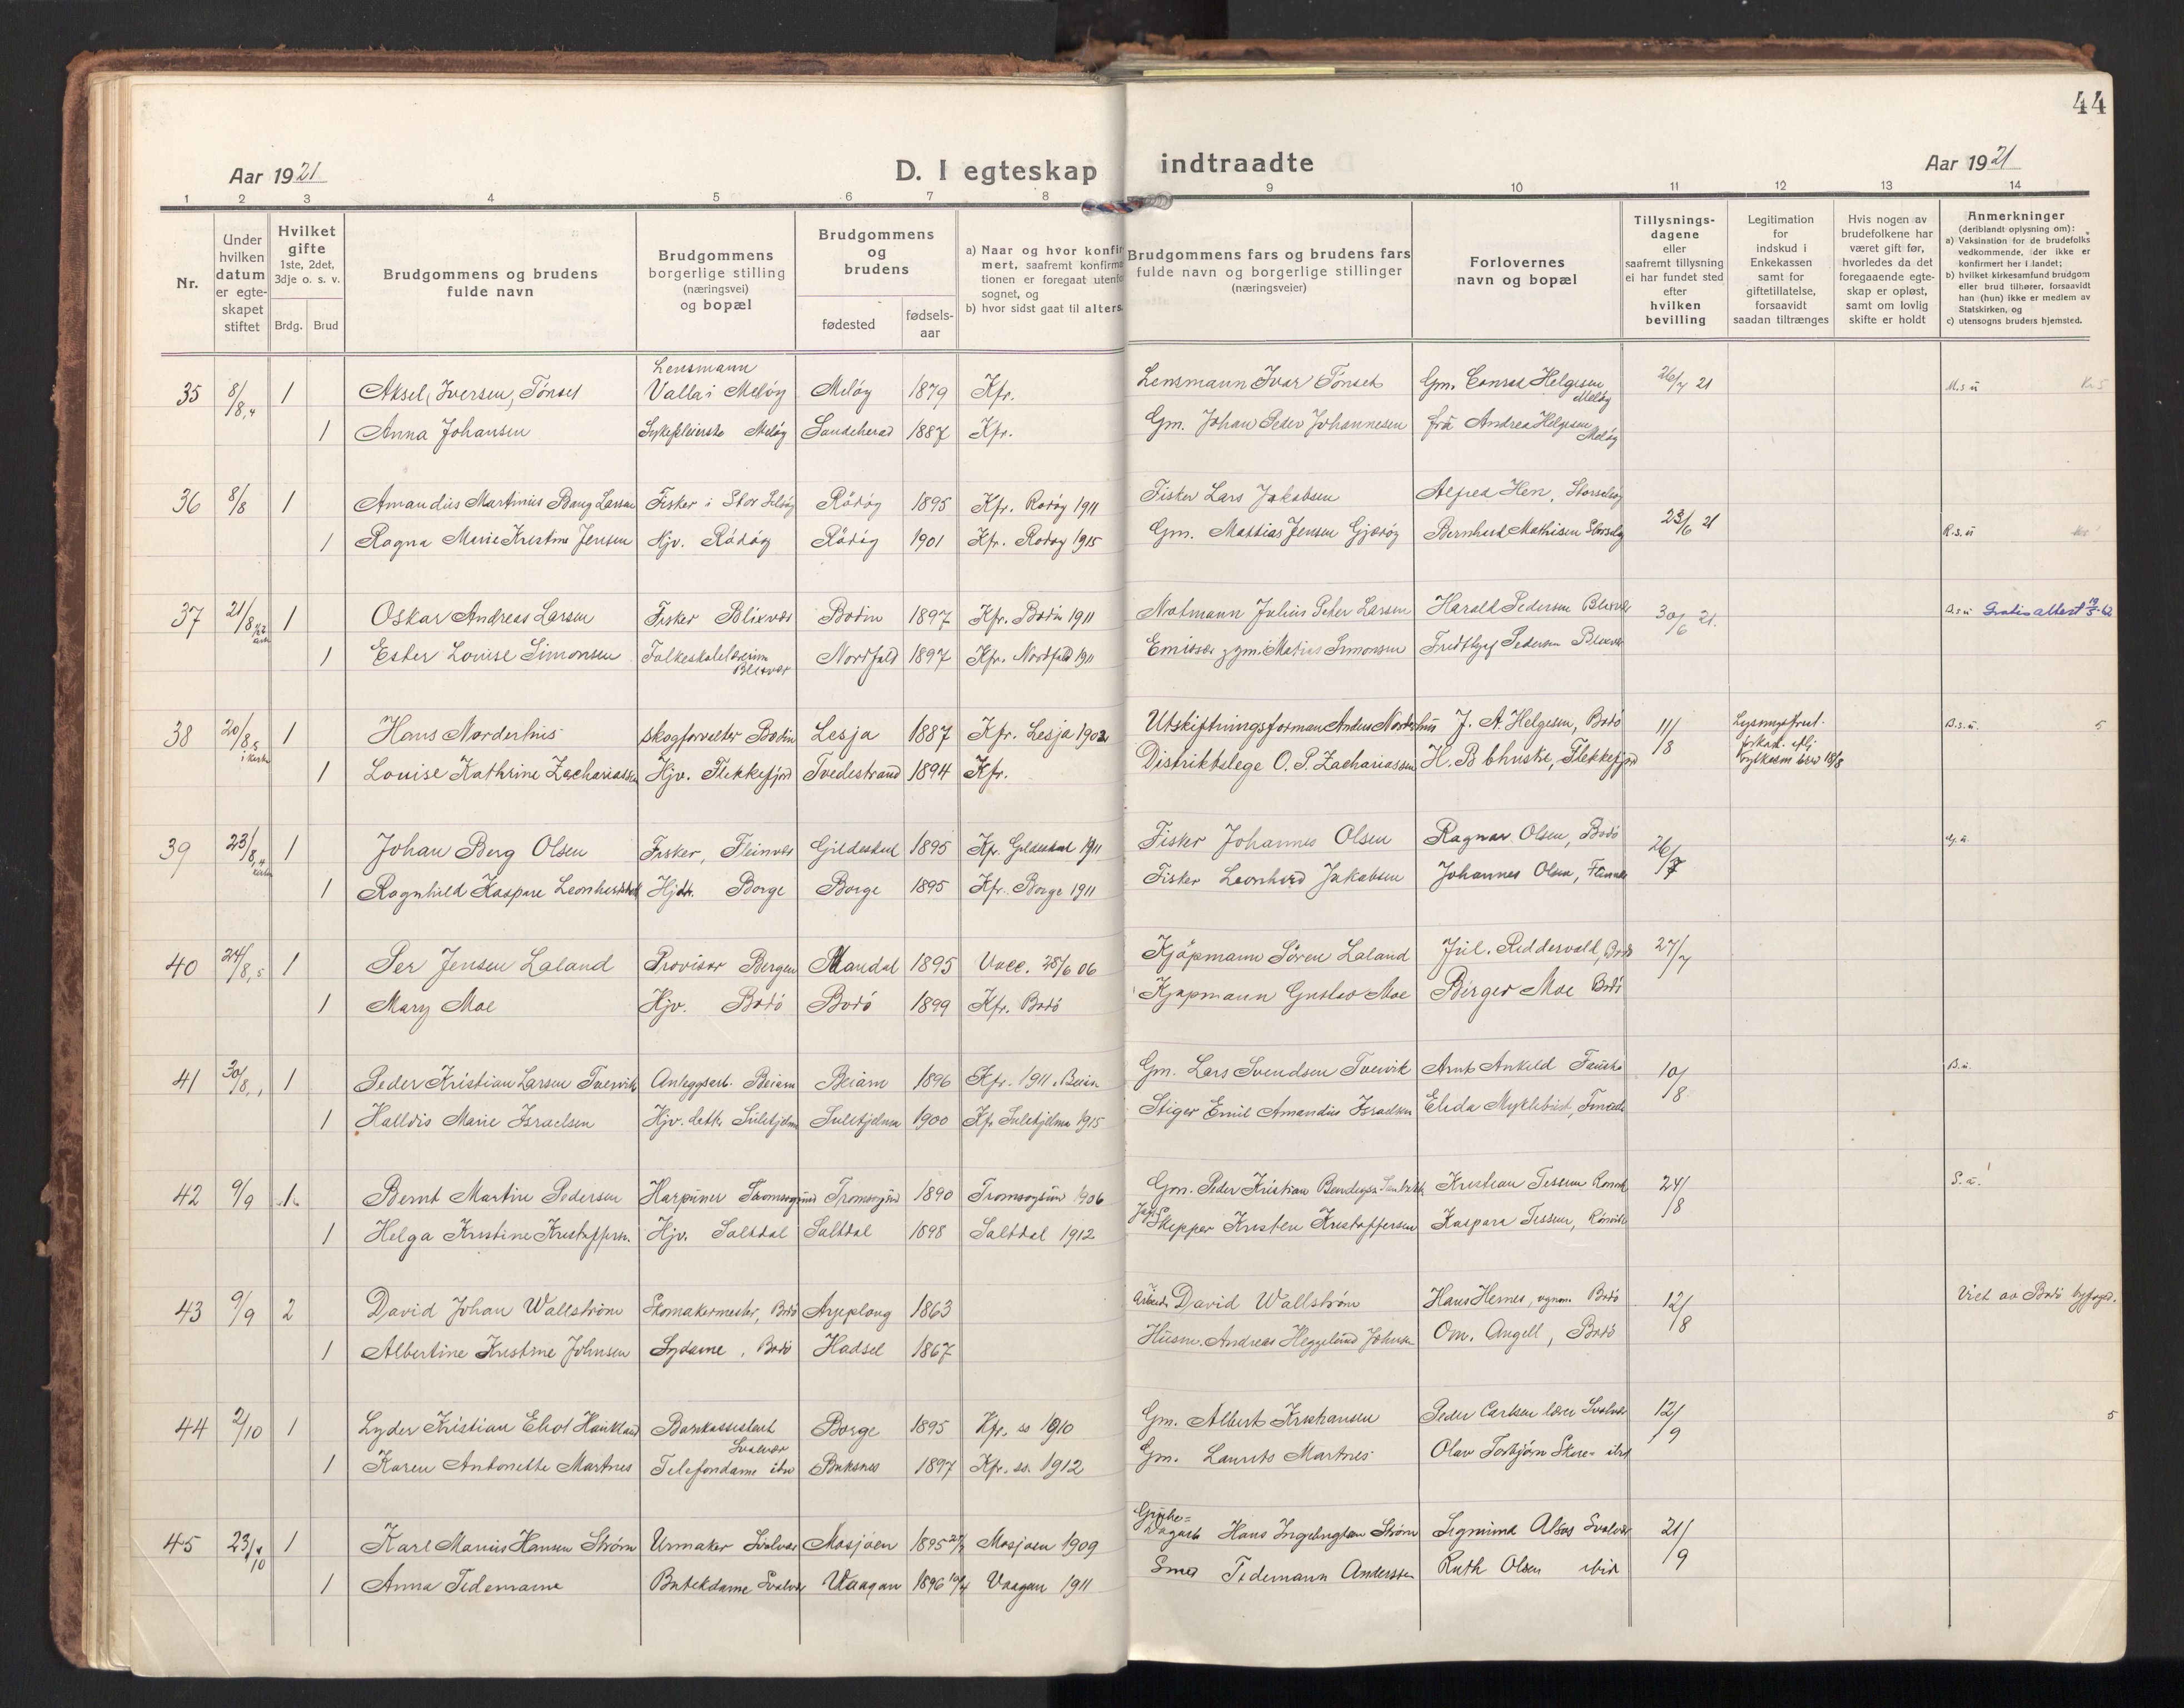 44
Aar 1921
D. I egteskap indtraadte
Aar 1921
1 2 3 4 5 6 7 8 9 10 11 12 13 14
Nr.
Under hvilken datum er egteskapet stiftet
Hvilket gifte
1ste, 2det, 3dje o. s. v.
Brdg. Brud
Brudgommens og brudens fulde navn
Brudgommens borgerlige stilling (næringsvei) og bopæl
Brudgommens og brudens
fødested
fødselsaar
a) Naar og hvor konfirmert, saafremt konfirmationen er foregaat utenfo sognet, og
b) hvor sidst gaat til alters.
Brudgommens fars og brudens fars fulde navn og borgerlige stillinger (næringsveier)
Forlovernes navn og bopæl
Tillysningsdagene eller saafremt tillysning ei har fundet sted efter hvilken bevilling
Legitimation for indskud i Enkekassen samt for giftetillatelse, forsaavidt saadan tiltrænges
Hvis nogen av brudefolkene har været gift før, hvorledes da det foregaaende egteskap er opløst, samt om lovlig skifte er holdt
Anmerkninger (deriblandt oplysning om):
a) Vaksination for de brudefolks vedkommende, der ikke er konfirmert her i landet;
b) hvilket kirkesamfund brudgom eller brud tilhører, forsaavidt han (hun) ikke er medlem av Statskirken, og
c) utensogns bruders hjemsted.
35 8/8,4 1 Aksel Iversen Tönset Lensmann Valla i Melöy Melöy 1879 Kfr. Lensmann Ivar Tönset Gm. Conrad Helgesen Melöy 26/7 21 M.s.u
1 Anna Johansen Sykepleierske Melöy Sandeherad 1887 Kfr. Gm. Johan Peder Johannesen fru Andrea Helgesen Melöy
36 8/8 1 Amandus Martinius Bang Larsen Fisker i Stor Selöy Rödöy 1895 Kfr. Rodöy 1911 Fisker Lars Jakobsen Alfred Hen, Storselöy 23/6 21
1 Ragna Marie Kristine Jensen Hjv. Rödöy Rödöy 1901 Kfr. Rodöy 1915 Gm. Mattias Jensen Gjeröy Bernhard Mathisen Storseløy R.s.u
37 21/8 1 Oskar Andreas Larsen Fisker Blixvær Bodin 1897 Kfr. Bodin 1911 Notmann Julius Peter Larsen Harald Pedersen Blixvær 30/6 21. B.s.u Gratis attest 19/5-62
1 Ester Lovise Simonsen Folkeskolelærerinne Blixvær Nordfold 1897 Kfr. Nordfold 1911 Emissær, gm. Matius Simonsen Fridthjof Pedersen Blixvær
38 20/8,5 i kirke 1 Hans Norderhus skogforvalter Bodin Lesja 1887 Kfr. Lesja 1902 Utskiftningsforman Anders Norderhus J. A. Helgesen, Bodö 11/8 B.s.u. 5
1 Louise Kathrine Zachariassen Hjv. Flekkefjord Tvedestrand 1894 Kfr. Distriktslege O. P. Zachariassen Flekkefjord
39 23/8,4 1 Johan Berg Olsen Fisker, Fleinvær Gildeskaal 1895 Kfr. Gildeskaal 1911 Fisker Johannes Olsen Ragnar Olsen, Bodö 26/7 G.u.
1 Ragnhild Kaspare Leonhardsdatter Borge Borge 1895 Kfr. Borge 1911 Fisker Leonhard Jakobsen Johannes Olsen, Fleinvær
40 24/8,5 1 Per Jensen Laland Provisor Bergen Mandal 1895 Vacc. 28/6 06 Kjöpmann Sören Laland Jul. Riddervold, Bodö 27/7
1 Mary Moe Hjv. Bodö Bodö 1899 Kfr. Bodö Kjøpmann Gustav Moe Birger Moe Bodö
41 30/8,1 1 Peder Kristian Larsen Tvervik Anleggsarb. Beiarn Beiarn 1896 Kfr. 1911 Beiarn Gm. Lars Svendsen Tvervik Arnt Ankild Fauske 10/8 B.u.
1 Halldis Marie Israelsen Hjv. dattr. Sulitjelma Sulitjelma 1900 Kfr Sulitjelma 1915 Stiger Emil Amandus Israelsen Elida Myklebust,
42 9/9 1 Bernt Martin Pedersen Harpuner Tromsøysund Tromsøysund 1890 Tromsøysund 1906 Gm. Peder Kristian Kristian Tessem 24/8 S.u.
1 Helga Kristine Kristoffersen Hjv. Saltdal Saltdal 1898 Saltdal 1912 Skipper Kristen Kristoffersen Kaspara Tessem,
43 9/9 2 David Johan Wallström Skomakermester, Bodö Arjeplong 1863 Arbeid. David Wallström Hans Hernes, vognm. Bodö 12/8 Viet av Bodö byfoged.
1 Albertine Kristine Johnsen Sydame, Bodö Hadsel 1867 Husm. Andreas Heggelund Johnsen Om. Angell, Bodö
44 2/10 1 Lyder Kristian Elvot Haukland Bankassistent Svolvær Borge 1895 Kfr. ss 1910 Gm. Albert Kristiansen Peder Carlsen lærer Svolvær 12/9 5
1 Karen Antonette Martnes Telefondame Buksnes 1897 Kfr. ss. 1912 Gm. Laurits Martnes Olav Torbjörn
45 23/10 1 Karl Marius Hansen Ström Urmaker Svolvær Mosjøen 1895 Mosjoen 1909 Hans Ingebrigtsen Strøm Sigmund Alsos Svolvær 21/9
1 Anna Tedemann Butekdame Svolvær Vaagan 1896 Vaagan 1911 Tedemann Anderssen Ruth Olsen ibid